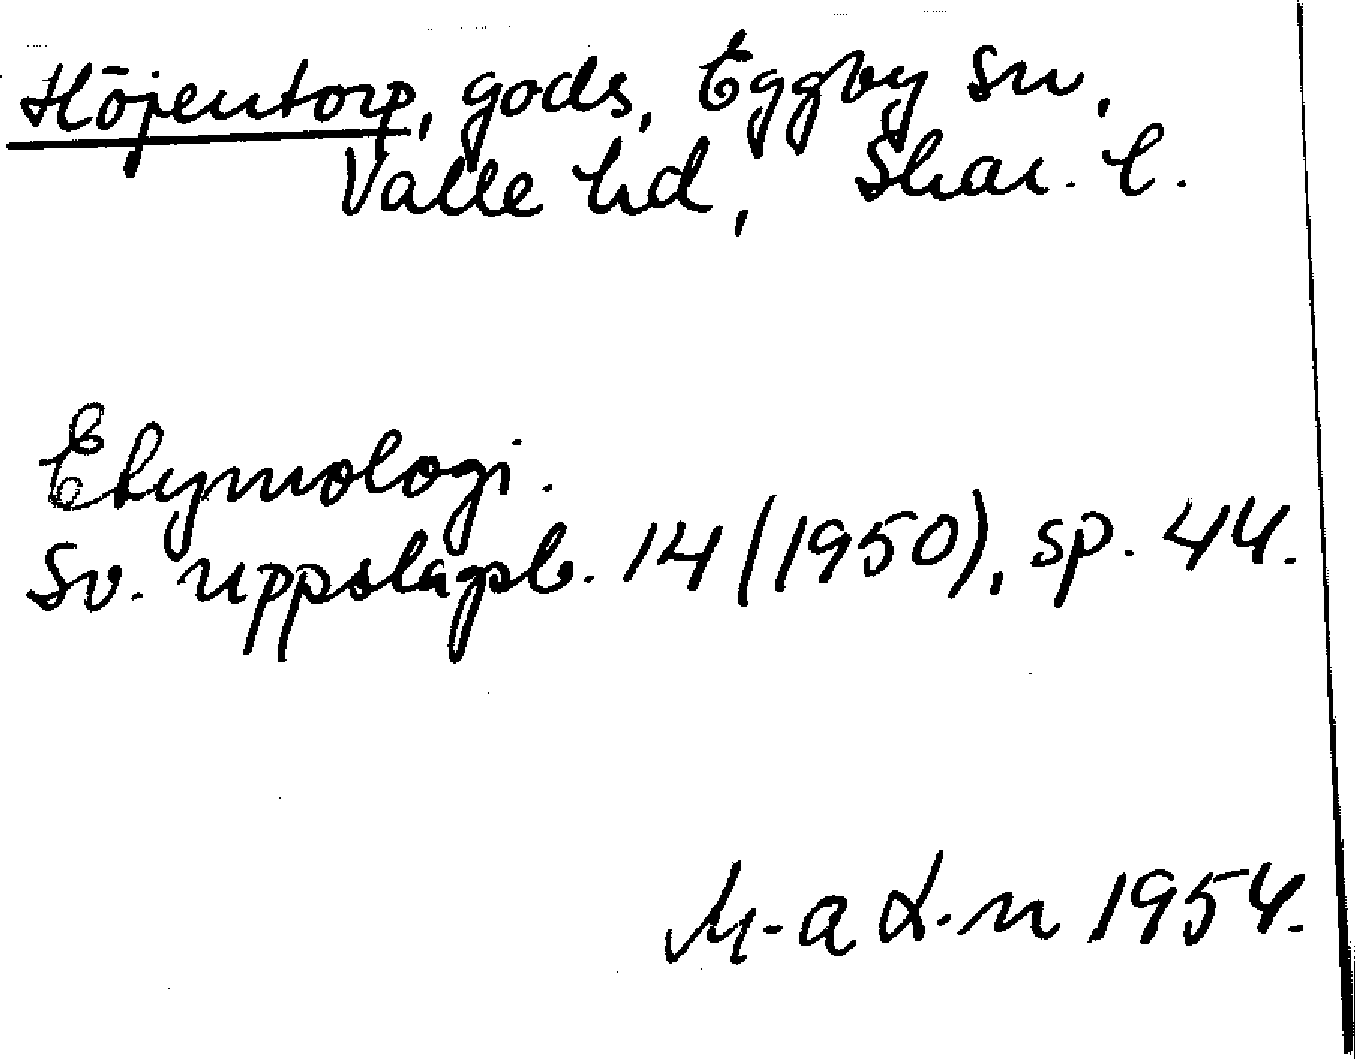 Höjentorp, gods, Eggby sn,
Valle hd, Skar. l.
Etymologi.
Sv. uppslagsb. 14 (1950), sp. 44.
M-a L-n 1954.